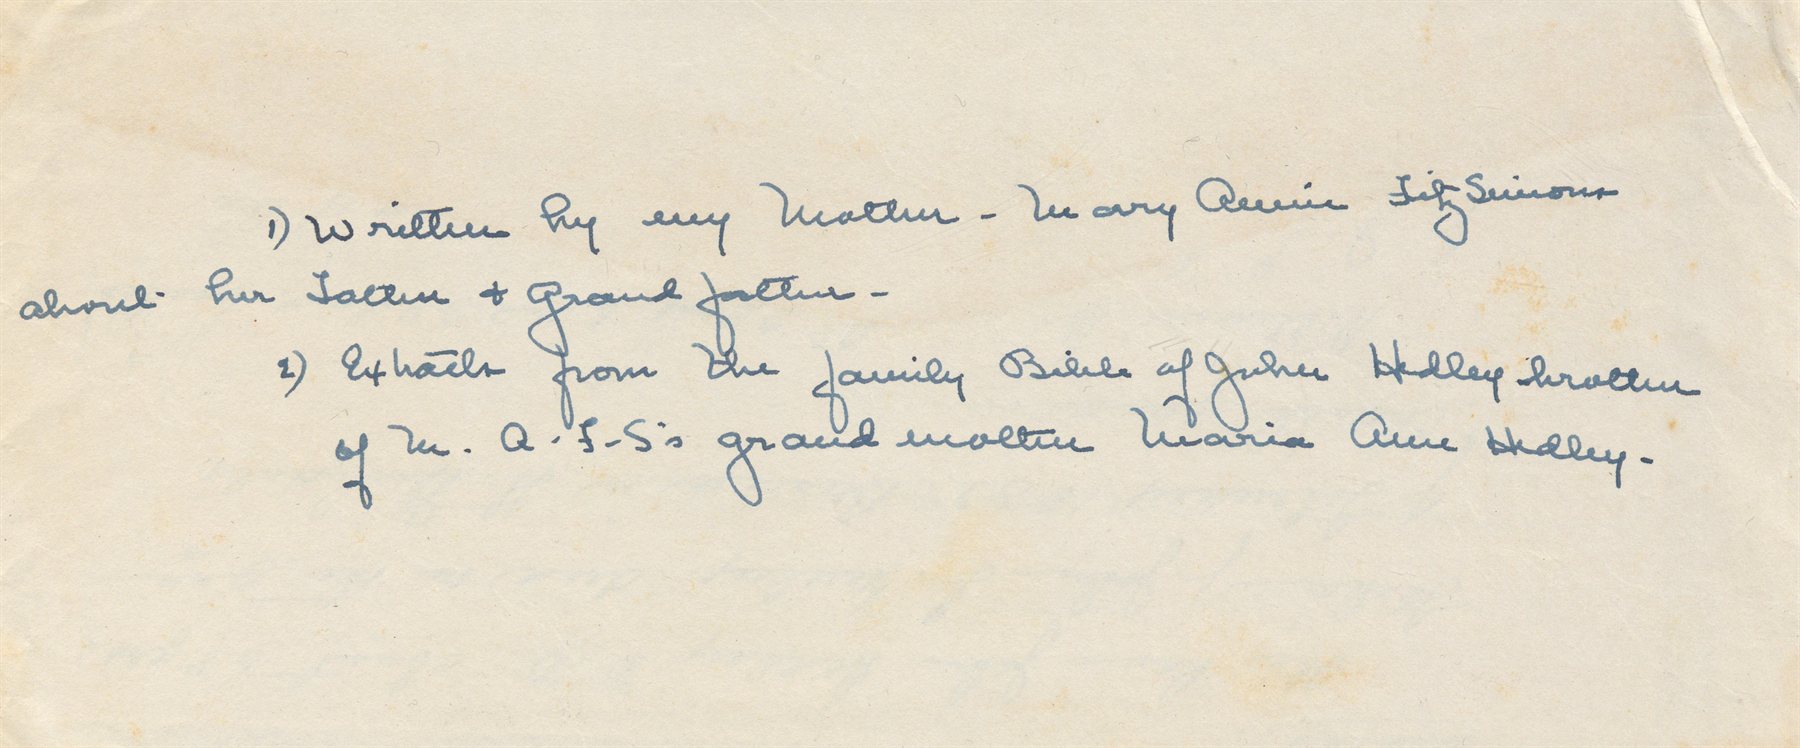 1) Written by my Mother - Mary Annie FitzSimons
about her Father + Grandfather -
2) Extracts from the family Bible of John Hedley brother
of M. A. F-S's grandmother Maria Ann Hedley -